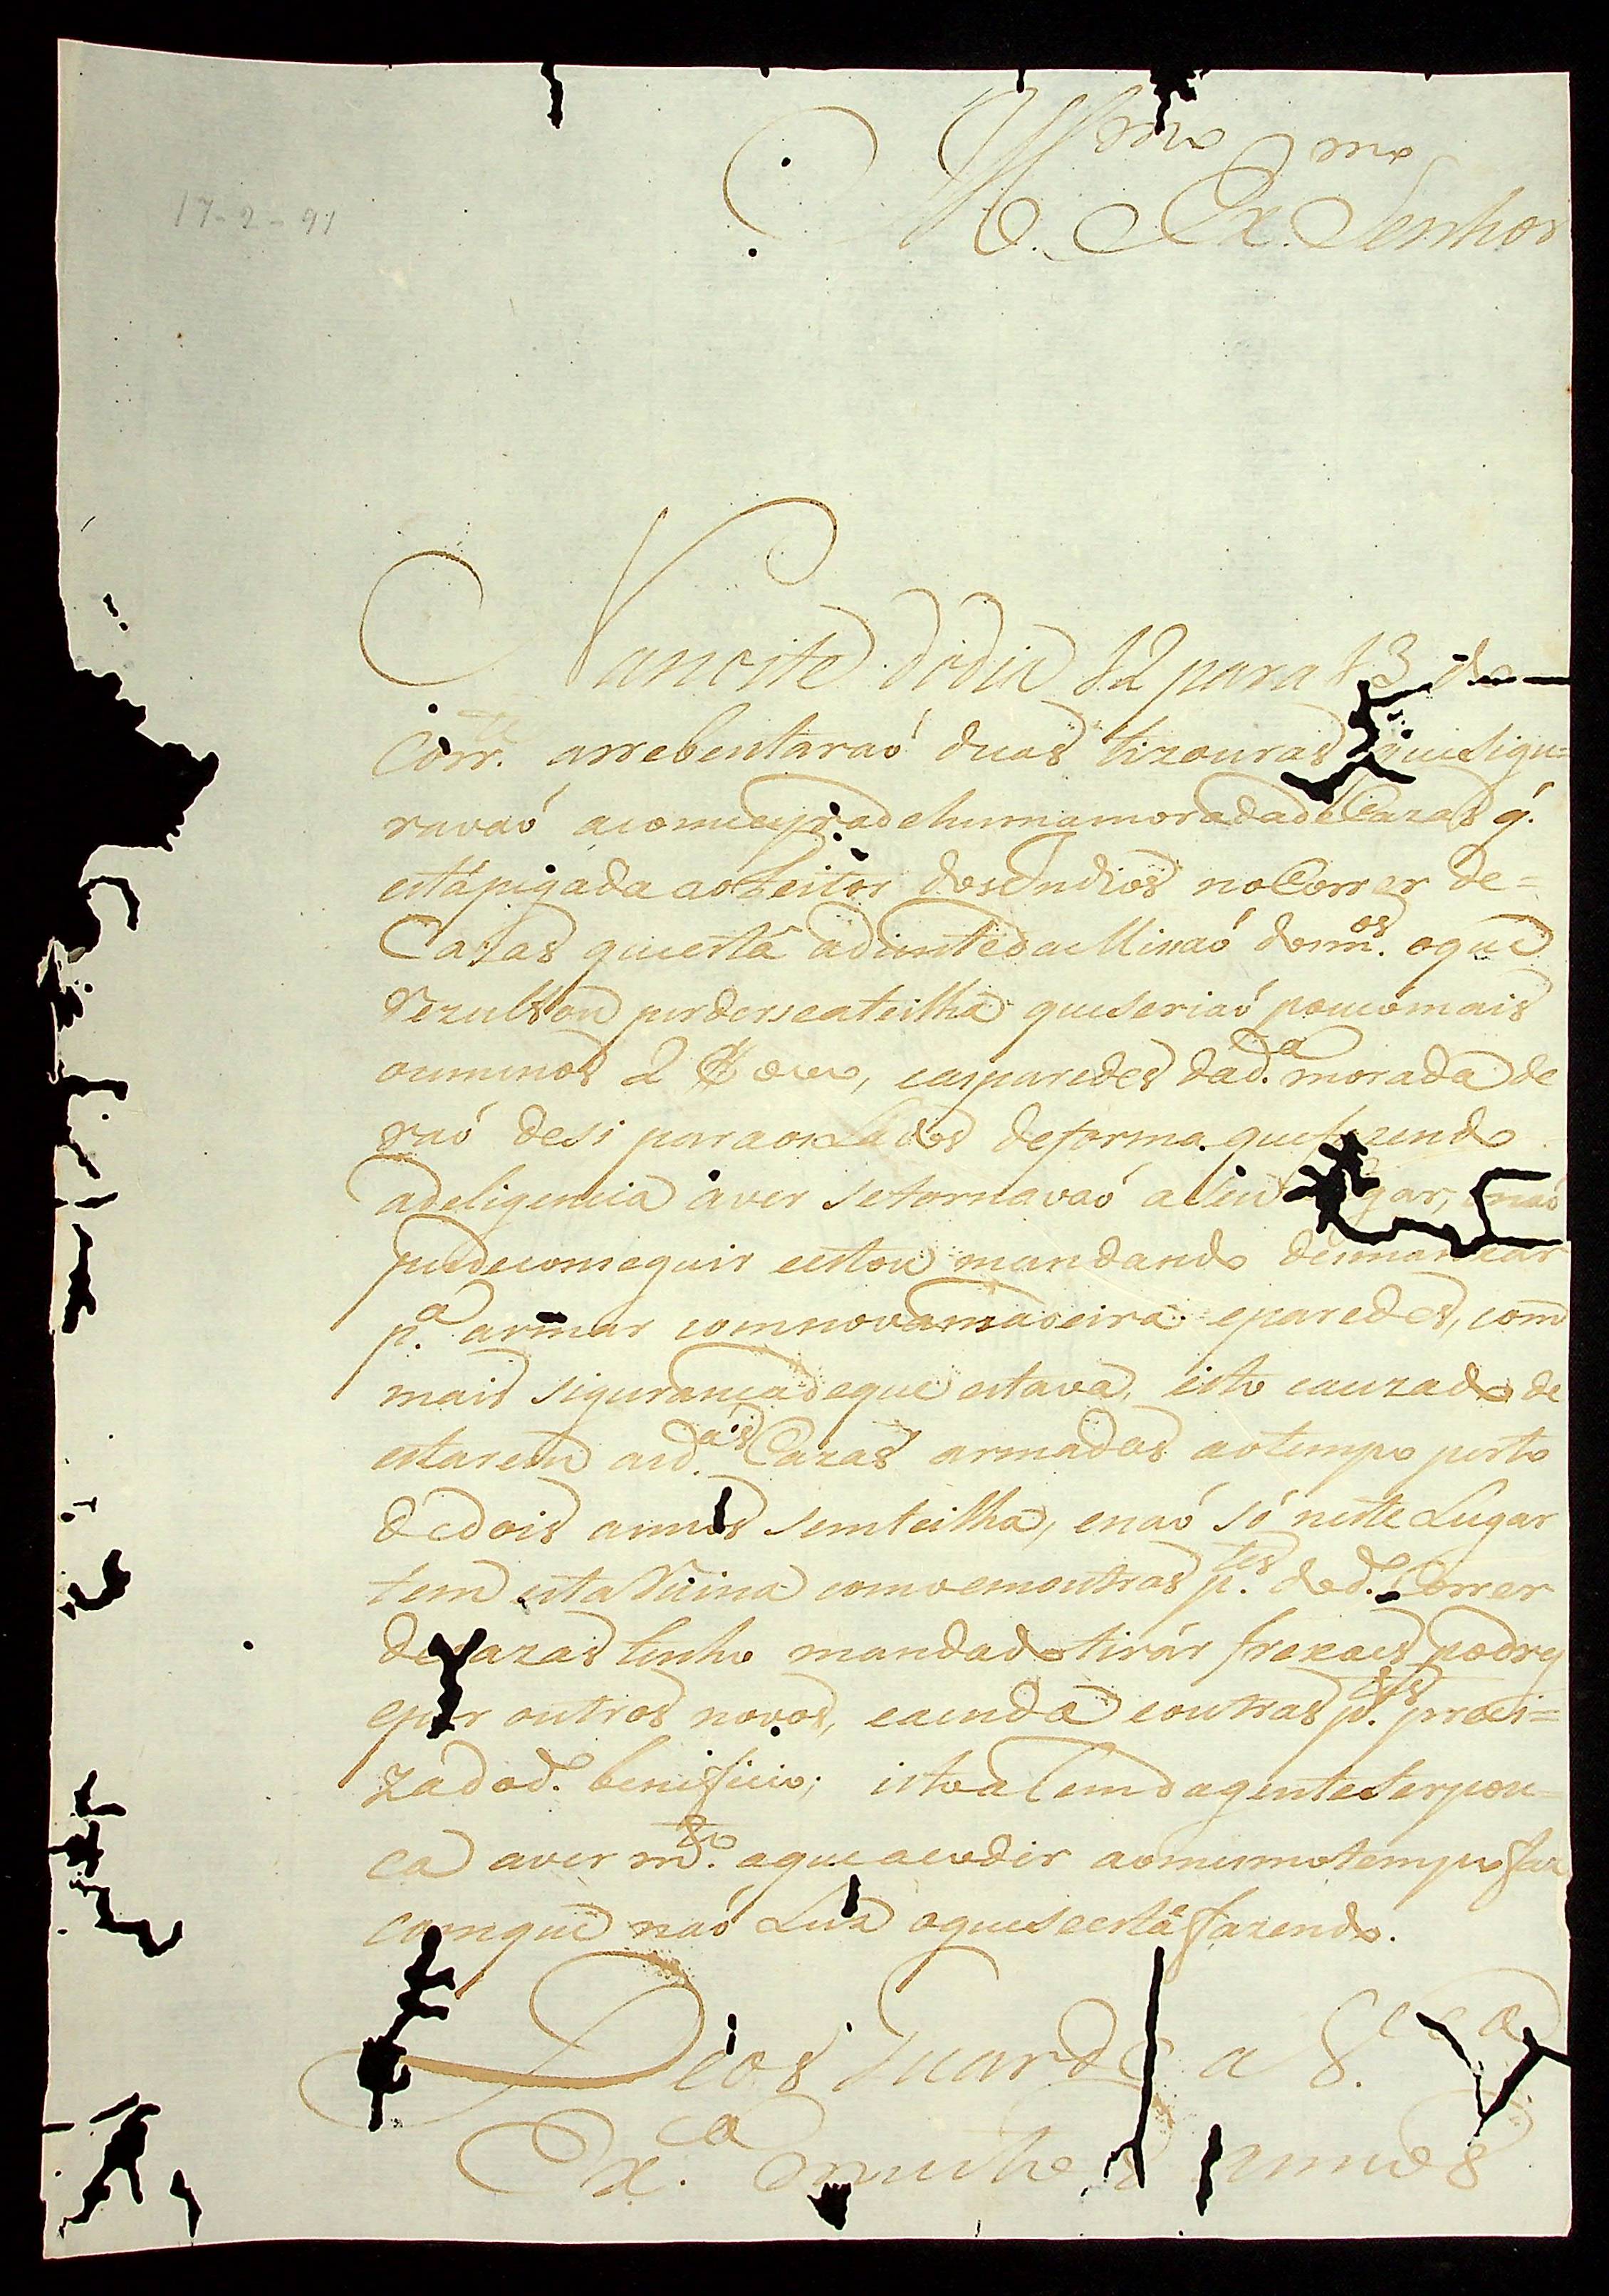 17-2-91
Ill.mo Ex.mo Senhor
Na noite do dia 12 para 13 do
Corr.e arrebentaraó duas tizouras que sigu=
ravaó a comieyra de huma morada de Cazas q.
está pigada ao Feitor dos Indios no Correr de=
Cazas que está adiante da Missaó dos m.os o que
Rezultou perderse a teilha que seriaó pouco mais
ou menos 2 $ , e as paredes da d.a morada de
raó de si para os Lados de forma que fazendo
a deligencia a ver se tornavaó a seu gar, e naó
pude conseguir e estou mandando desmanxar
p.a armar com nova madeira e paredes, com
mais sigurança de que estava, isto cauzado de
estarem as d.as Cazas armadas ao tempo perto
de dois annos sem teilha, e naó só neste Lugar
tem esta Ruina como em outras p.tes do d.o Correr
de cazas tenho mandado tirár frexaes podres
e por outros novos, e ainda e outras p.tes preci=
za do d.o benificio; isto alem da gente ser pou=
ca aver m.to a que acodir ao mesmo tempo faz
com que naó Luza o que se está fazendo.
Deos Guarde a V.
Ex.a muitos annos